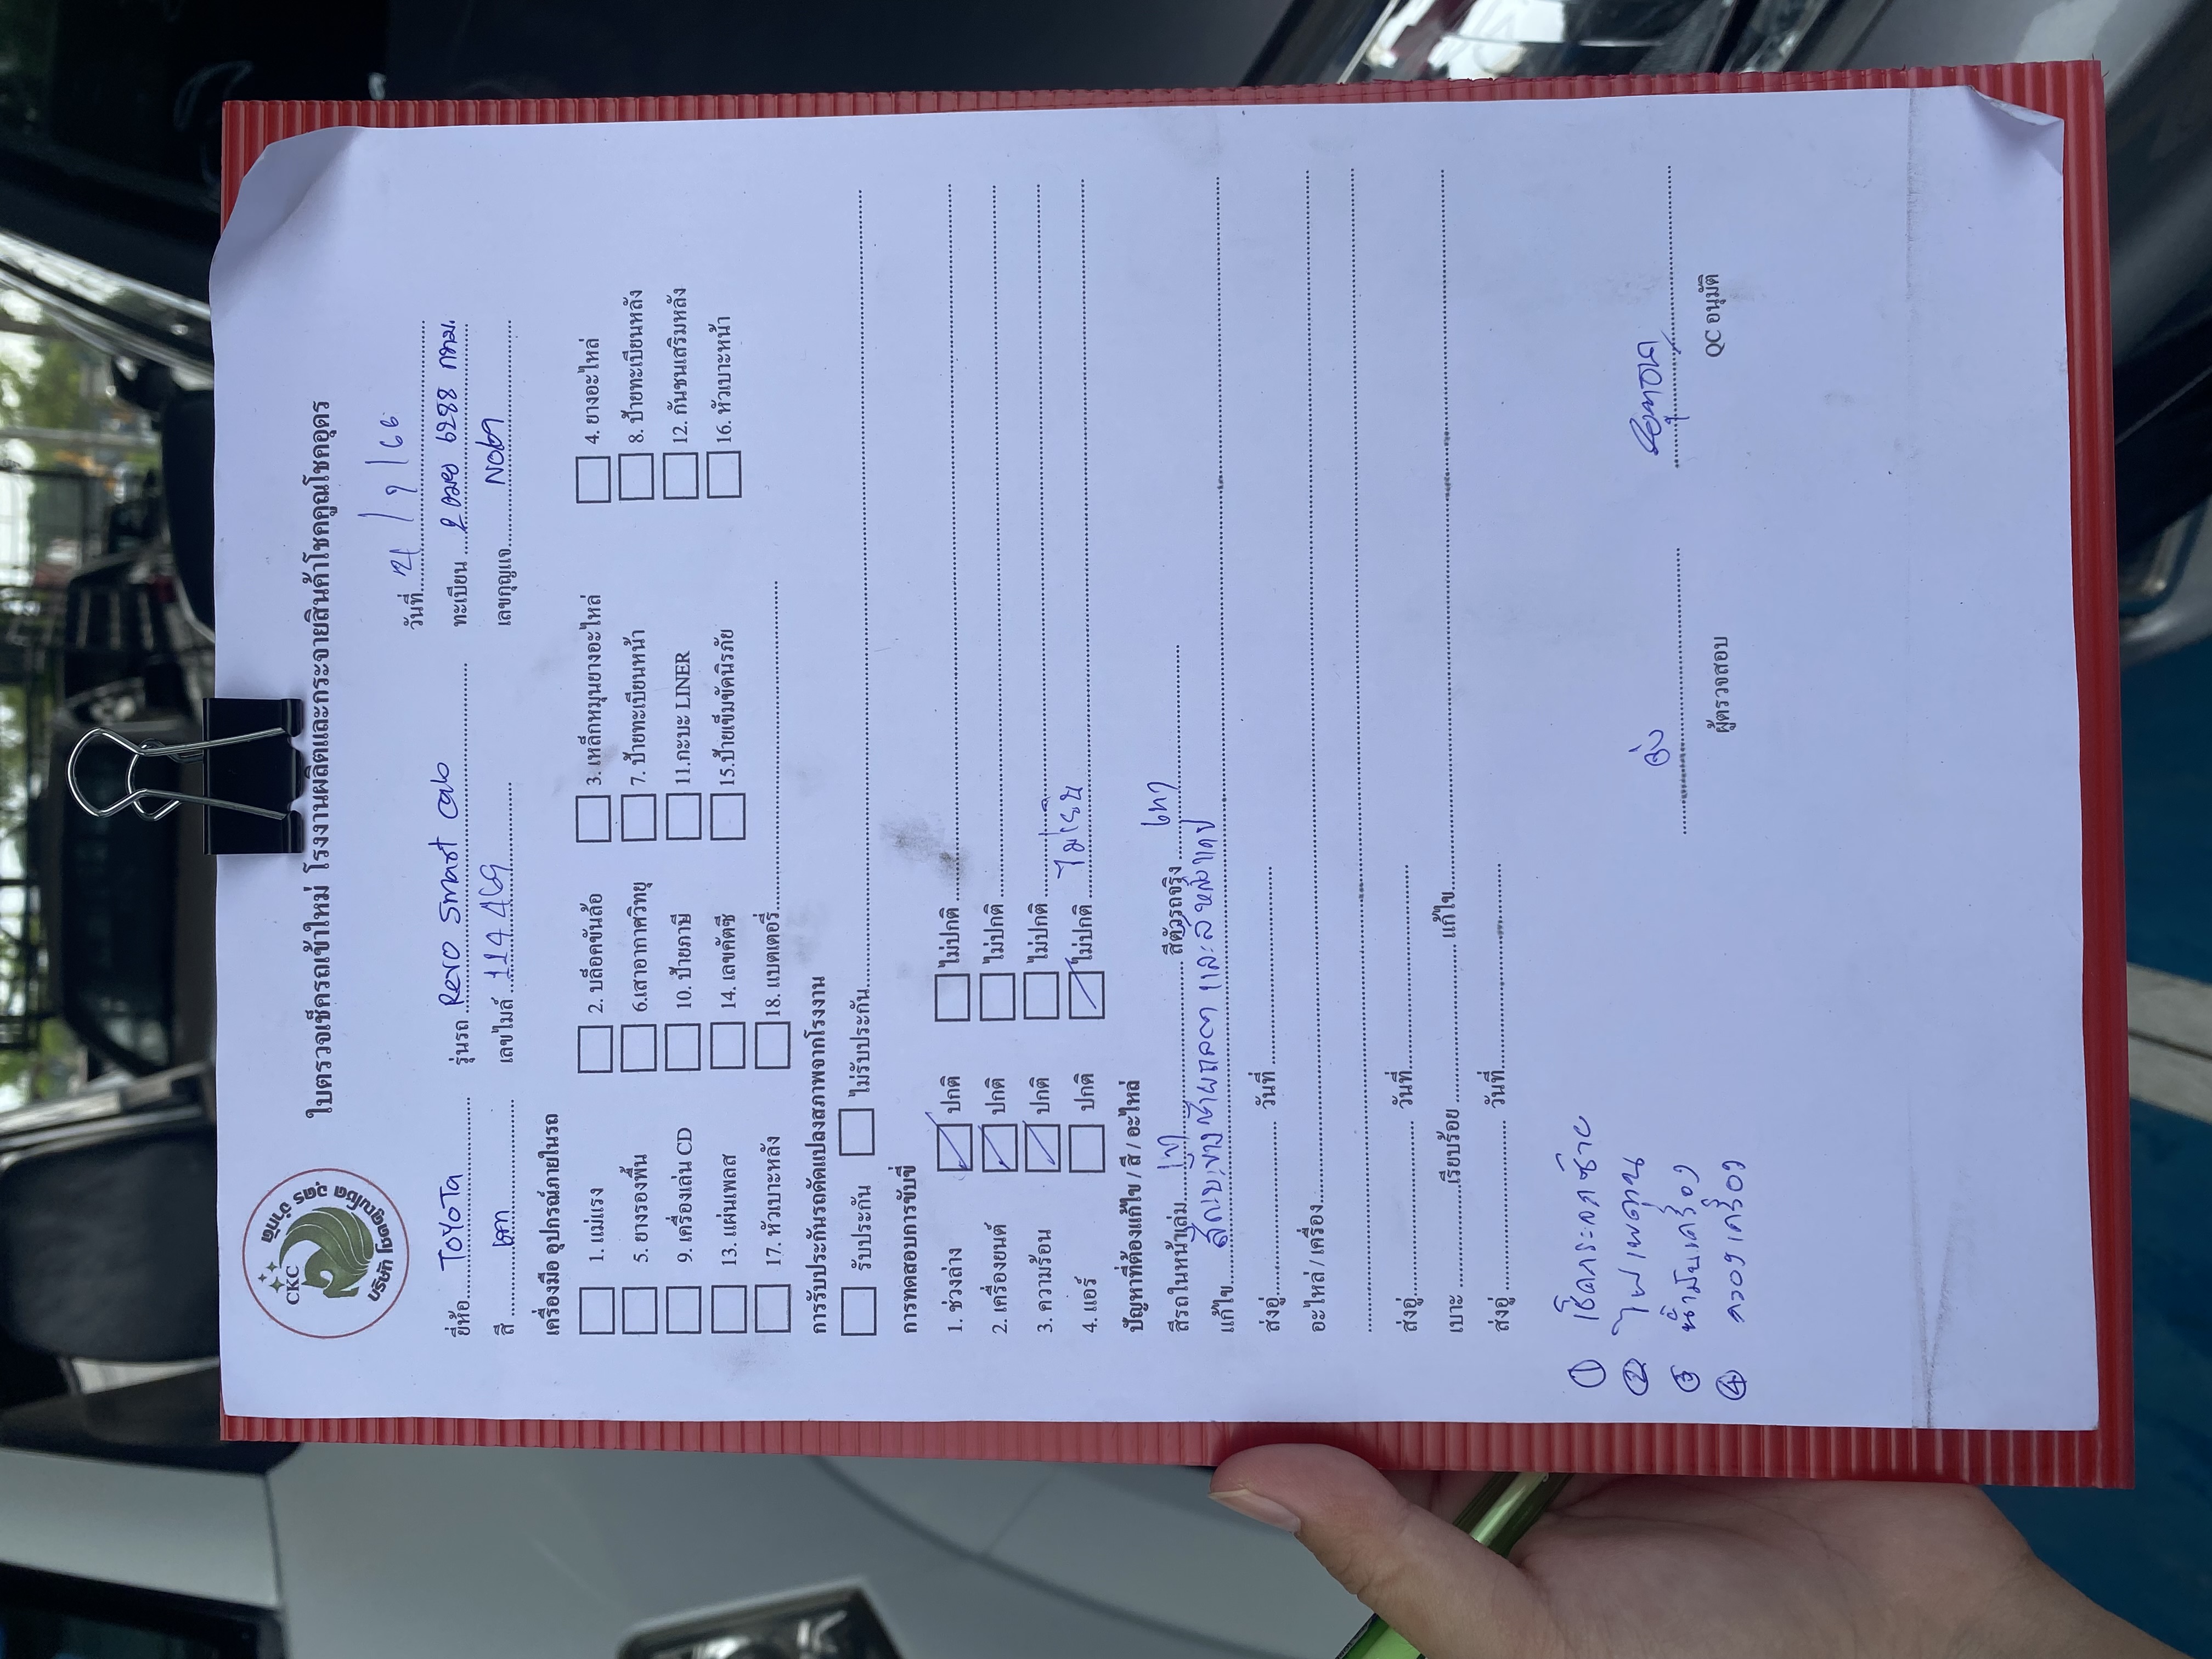 CKC
บริษัท โชคคูณโชค อุดร จำกัด
ใบตรวจเช็ครถเข้าใหม่ โรงงานผลิตและกระจายสินค้าโชคคูณโชคอุดร
วันที่ 21 / 9 / 66
ยี่ห้อ TOYOTA รุ่นรถ Revo Smart Cab ทะเบียน 2ฒฆ 6288 กทม.
สี เทา เลขไมล์ 114469 เลขกุญแจ
เครื่องมือ อุปกรณ์ภายในรถ
1. แม่แรง 2. บล็อคขันล้อ 3. เหล็กหมุนยางอะไหล่ 4. ยางอะไหล่
5. ยางรองพื้น 6.เสาอากาศวิทยุ 7. ป้ายทะเบียนหน้า 8. ป้ายทะเบียนหลัง
9. เครื่องเล่น CD 10. ป้ายภาษี 11.กะบะ LINER 12. กันชนเสริมหลัง
13. แผ่นเพลส 14. เลขคัตซี 15.ป้ายเข็มขัดนิรภัย 16. หัวเบาะหน้า
17. หัวเบาะหลัง 18. แบตเตอรี่
การรับประกันรถดัดแปลงสภาพจากโรงงาน
รับประกัน ไม่รับประกัน
การทดสอบการขับขี่
1. ช่วงล่าง ปกติ ไม่ปกติ
2. เครื่องยนต์ ปกติ ไม่ปกติ
3. ความร้อน ปกติ ไม่ปกติ
4. แอร์ ปกติ ไม่ปกติ ไม่เย็น
ปัญหาที่ต้องแก้ไข / สี / อะไหล่
สีรถในหน้าเล่ม เทา สีตัวรถจริง เทา
แก้ไข
ส่งอู่ วันที่
อะไหล่ / เครื่อง
ส่งอู่ วันที่
เบาะ เรียบร้อย แก้ไข
ส่งอู่ วันที่
① โช๊คกระจกซ้าย
② ไฟเพดาน
③ น้ำมันเครื่อง
④ กรองเครื่อง
ผู้ตรวจสอบ QC อนุมัติ